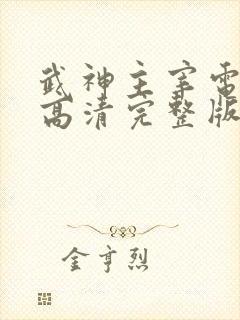 武神主宰电
高清完整版
金亨烈